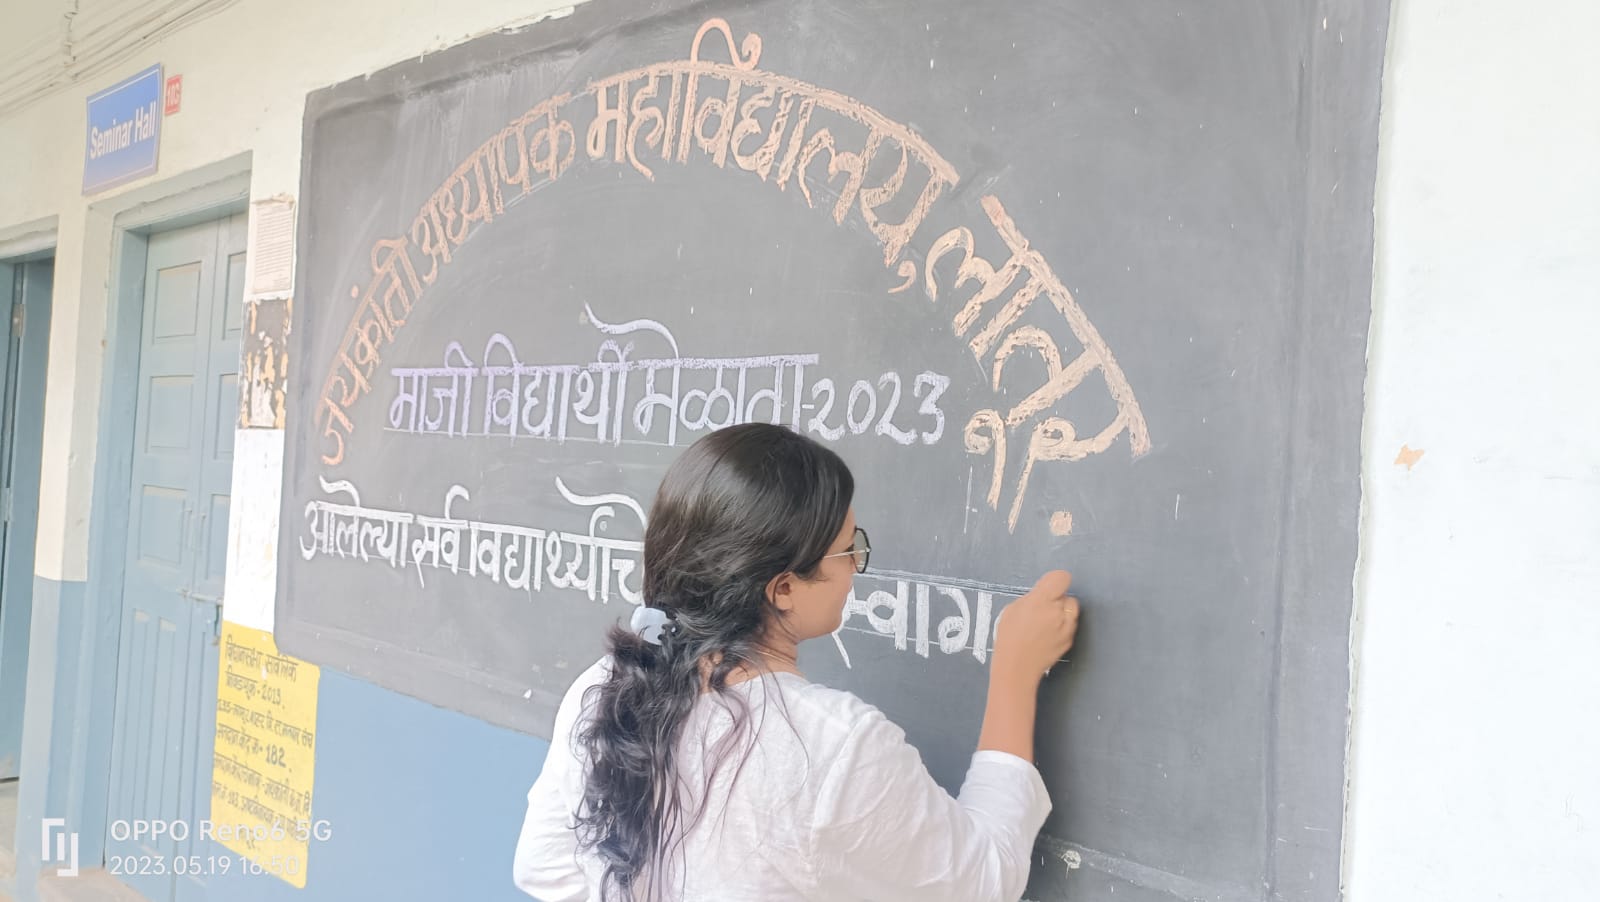 Seminar Hall
103
जयकांती अध्यापक महाविद्यालय, लातूर.
माजी विद्यार्थी मेळावा-२०२३
आलेल्या सर्व विद्यार्थ्यांचे
स्वाग
विधानसभा सार्वत्रिक
2013.
182.
OPPO Reno6 5G
2023.05.19 16:50